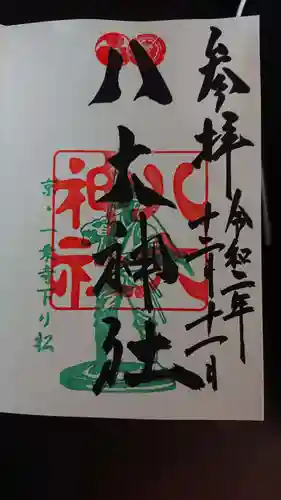 参拝
令和二年
十二月十一日
八大神社
八大神社
京・一乗寺下り松